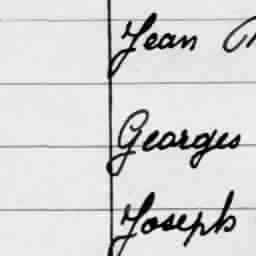 Jean
Georges
Joseph